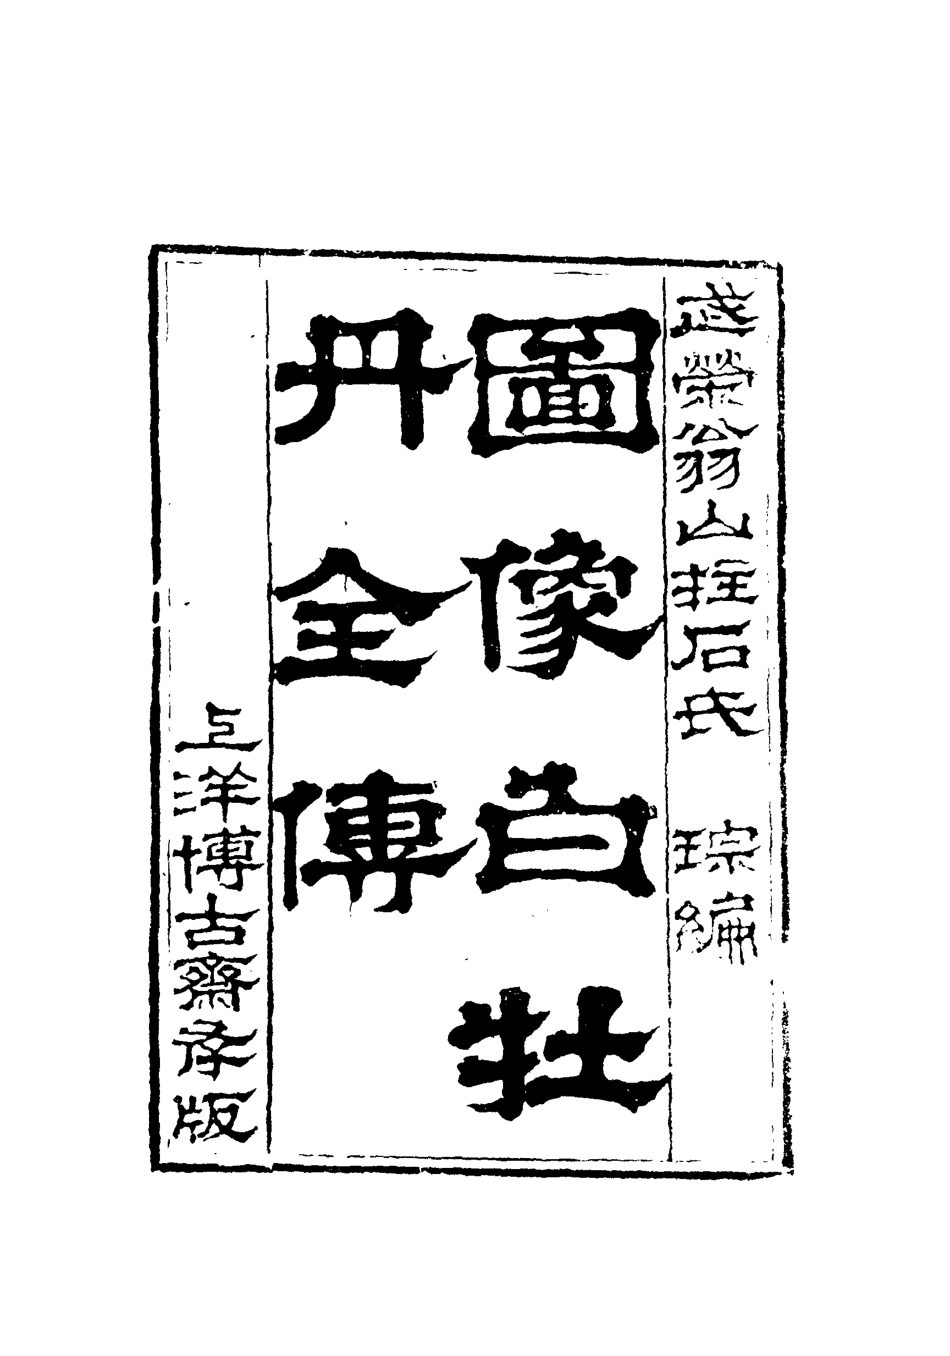 武榮翁山柱石氏　琮編
圖像白牡
丹全傳
上洋博古齋存版